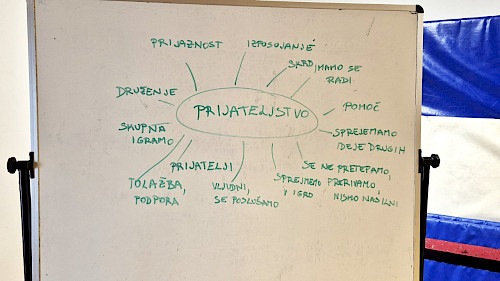 PRIJAZNOST
IZPOSOJANJE
SKRB,
IMAMO SE
RADI
DRUŽENJE
PRIJATELJSTVO
POMOČ
SKUPNA
IGRAMO
SPREJEMAMO
IDEJE DRUGIH
PRIJATELJI
TOLAŽBA,
PODPORA
VLJUDNI,
SE POSLUŠAMO
SPREJMEMO
V IGRO
SE NE PRETEPAMO,
PRERIVAMO,
NISMO NASILNI